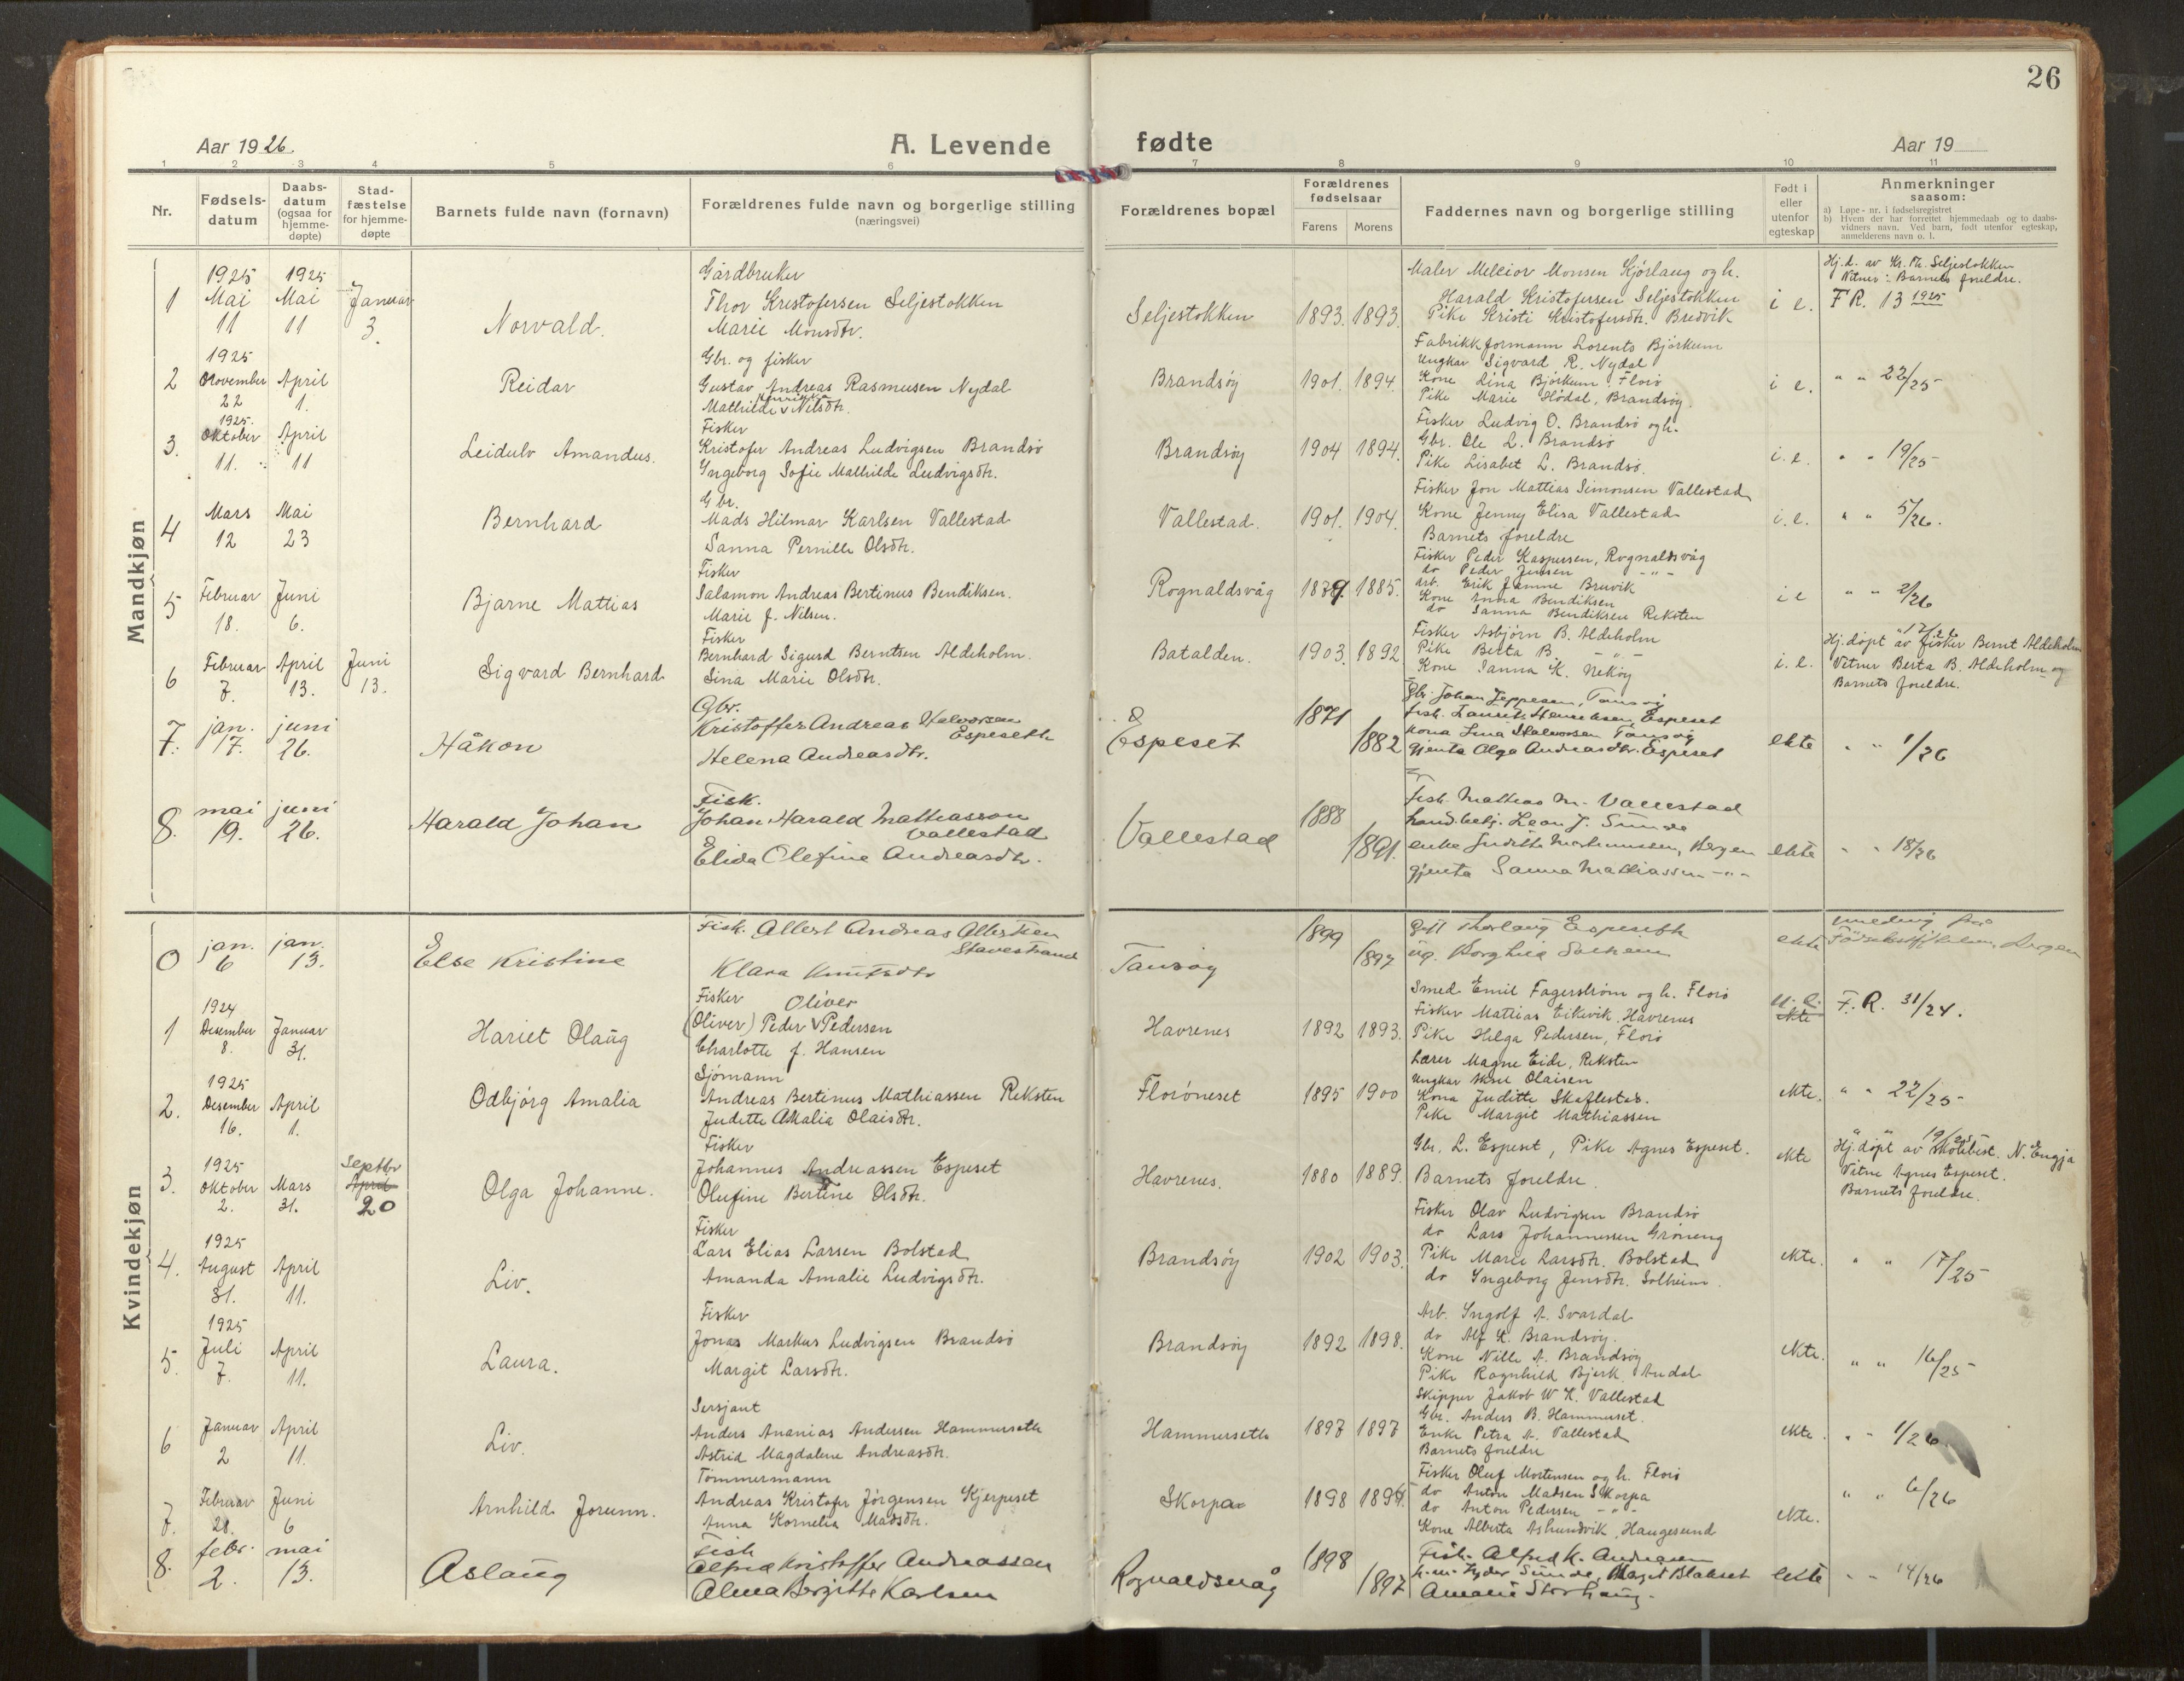 26
Aar 1926.
A. Levende fødte
Aar 19
1 2 3 4 5 6 7 8 9 10 11
Nr.
Fødselsdatum
Daabsdatum (ogsaa for hjemmedøpte)
Stadfæstelse for hjemmedøpte
Barnets fulde navn (fornavn)
Forældrenes fulde navn og borgerlige stilling (næringsvei)
Forældrenes bopæl
Forældrenes fødselsaar
Farens Morens
Faddernes navn og borgerlige stilling
Født i eller utenfor egteskap
Anmerkninger saasom:
a) Løpe-nr. i fødselsregistret
b) Hvem der har forrettet hjemmedaab og to daabsvidners navn. Ved barn, født utenfor egteskap, anmelderens navn o. l.
Mandkjøn
1
1925 Mai 11
1925 Mai 11
Januar 3.
Norvald.
Gårdbruker
Thor Kristofersen Seljestokken
Marie Monsdtr.
Seljestokken
1893. 1893.
Maler Melcior Monsen Kjørlaug og h.
Harald Kristofersen Seljestokken
Pike Kristi Kristofersdtr. Bredvik
i e.
Hj.d. av Kr. Th. Seljestokken
Vitner: Barnets foreldre.
F R. 13 1925
2
1925 November 22
April 1.
Reidar
Gbr. og fisker
Gustav Andreas Rasmusen Nydal
Mathilde Henrikka Nilsdtr.
Brandsøy
1901. 1894.
Fabrikkformann Lorents Bjørkum
Ungkar Sigvard R. Nydal
Kone Lina Bjørkum Florø
Pike Marie Hødal, Brandsøy.
i e.
" " 22/25
3.
1925. Oktober 11.
April 11
Leidulv Amandus.
Fisker
Kristofer Andreas Ludvigsen Brandsø
Ingeborg Sofie Mathilde Ludvigsdtr.
Brandsøy
1904 1894.
Fisker Ludvig O. Brandsø og h.
Gbr. Ole L. Brandsø
Pike Lisabet L. Brandsø.
i. e.
" " 19/25
4
Mars 12
Mai 23
Bernhard
Gbr.
Mads Hilmar Karlsen Vallestad
Sanna Pernille Olsdtr.
Vallestad.
1901. 1904.
Fisker Jon Mattias Simonsen Vallestad
Kone Jenny Elisa Vallestad
Barnets foreldre
i. e.
" " 5/26.
5
Februar 18.
Juni 6.
Bjarne Mattias
Fisker
Salamon Andreas Bertinus Bendiksen.
Marie f. Nilsen.
Rognaldsvåg
1885.
Fisker Peder Kaspersen, Rognaldsvåg
do Peder Jensen - " -
Arb. Erik Hamne Bruvik
Kone Anna Bendiksen
do Sanna Bendiksen Reksten
i e
" " 2/26
6
Februar 7.
April 13.
Juni 13.
Sigvard Bernhard
Fisker
Bernhard Sigurd Berntsen Aldeholm.
Lina Marie Olsdtr.
Batalden.
1903. 1892
Fisker Asbjørn B. Aldeholm
Pike Berta B. - " -
Kone Janna K. Nekøy
i. e.
Hj.døpt av fisker Bernt Aldeholm
Vitner Berta B. Aldeholm og
Barnets foreldre.
7.
jan. 17.
juni 26.
Håkon
Gbr.
Kristoffer Andreas Halvorsen Espeseth
Helena Andreasdtr.
Espeset
1871 1882
Gbr. Johan Jeppesen, Tansøy
fisk. Laurits Henriksen Espeset
Kona Lina Halvorsen Tansøy
gjenta Olga Andreasdtr. Espeset
ekte
" " 1/26
8.
mai 19.
juni 26.
Harald Johan
Fisk.
Johan Harald Mathiasson Vallestad
Elida Olefine Andreasdtr.
Vallestad
1888 1891.
fisk. Mathias M. Vallestad
handl.betj. Leon J. Sunde
enke Judith Rasmussen, Bergen
gjenta Sanna Mathiassen - " -
ekte
" " 18/26
Kvindekjøn
0
jan. 6
jan. 13.
Else Kristine
Fisk. Albert Andreas Albertsen Stavestrand
Klara Knutsdtr
Tansøy
1899 1897
Thorlaug Espeseth
ug. Borghild Solheim
ekte
Bergen
1
1924 Desember 8.
Januar 31.
Hariet Olaug
Fisker
(Oliver) Peder Oliver Pedersen
Charlotte f. Hansen
Havrenes
1892 1893.
Smed Emil Fagerstrøm og h. Florø
Fisker Mattias Eikevik, Havrenes
Pike Helga Pedersen, Florø
u. e.
ekte
F. R. 31/24.
2.
1925 Desember 16.
April 1.
Odbjørg Amalia
Sjømann
Andreas Bertinus Mathiassen Reksten
Judette Amalia Olaisdtr.
Florøneset
1895 1900
Lærer Magne Eide, Reksten
Ungkar Arne Olaisen
Kona Juditte Skaflestad.
Pike Margit Mathiassen
ekte.
" " 22/25
3.
1925 Oktober 2.
Mars 31.
Septbr April 20
Olga Johanne.
Fisker
Johannes Andreassen Espeset
Olufine Bertine Olsdtr.
Havrenes.
1880 1889.
Gbr. L. Espeset, Pike Agnes Espeset.
Barnets foreldre.
ekte
19/25
Hj.døpt av skolebest. N. Engja
Vitne Agnes Espeset.
Barnets foreldre.
4.
1925 August 31.
April 11.
Liv.
Fisker
Lars Elias Larsen Bolstad
Amanda Amalie Ludvigsdtr.
Brandsøy
1902 1903.
Fisker Olav Ludvigsen Brandsø
do Lars Johannessen Grøneng
Pike Marie Larsdtr. Bolstad
do Ingeborg Jensdtr. Solheim.
ekte.
" " 17/25
5.
1925 Juli 7.
April 11.
Laura.
Fisker
Jonas Markus Ludvigsen Brandsø
Margit Larsdtr.
Brandsøy
1892 1898.
Arb. Ingolf A. Svardal
do Alf K. Brandsøy.
Kone Nille A. Brandsøy
Pike Ragnhild Bjerk, Andal
ekte.
" " 16/25
6
Januar 2
April 11.
Liv.
Sersjant
Anders Ananias Andersen Hammerseth
Astrid Magdalene Andreasdtr.
Hammerseth
1897 1897
Skipper Jakob W K. Vallestad
Gbr. Anders B. Hammerset.
Enke Petra A. Vallestad
Barnets foreldre
ekte.
" " 1/26.
7.
Februar 28.
Juni 6
Arnhild Jorunn.
Tømmermann
Andreas Kristofer Jørgensen Kjerpeset
Anna Kornelia Madsdtr.
Skorpa
1898
Fisker Oluf Mortensen og h. Florø
do Anton Madsen Skorpa
do Anton Pedersen - " -
Kone Alberta Ashundvik, Haugesund
ekte.
" " 6/26
8.
febr. 2.
mai 13.
Aslaug
Fisk
Alfred Kristoffer Andreassen
Alma Bergitte Karlsen
Rognaldsvåg
1898 1897
Fisk. Alfred K. Andreasen
Sunde, Magit Blakset
Amalie Storhaug.
ekte
" " 14/26